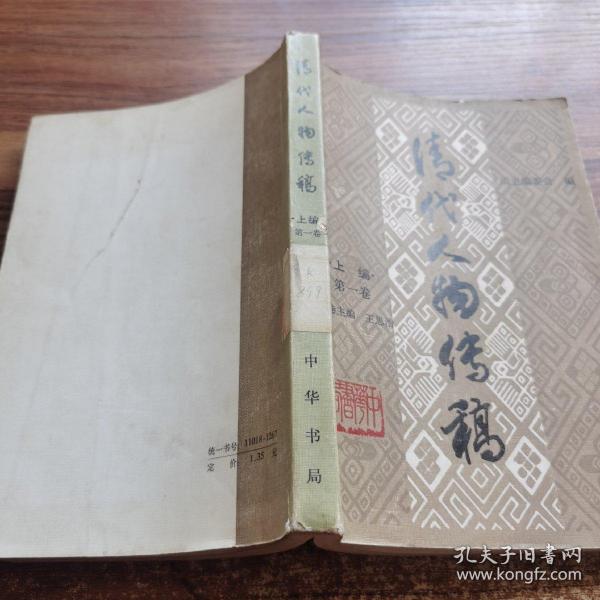 清代人物传稿
·上编·
第一卷
K
899
中华书局
清史编委会 编
清代人物传稿
·上编·
第一卷
主编 王思治
统一书号:11018·1267
定价:1.35元
孔夫子旧书网
www.kongfz.com